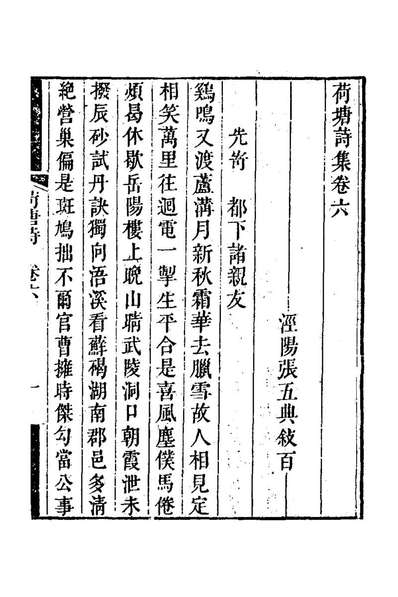 荷塘詩集卷六
涇陽張五典敍百
先寄 都下諸親友
鷄鳴又渡蘆溝月新秋霜華去臘雪故人相見定
相笑萬里往迴電一掣生平合是喜風塵僕馬倦
煩曷休歇岳陽樓上晚山晴武陵洞口朝霞泄未
撥辰砂試丹訣獨向浯溪看蘚碣湖南郡邑多清
絶營巢偏是斑鳩拙不爾官曹擁時傑勾當公事
荷塘詩 卷六 一